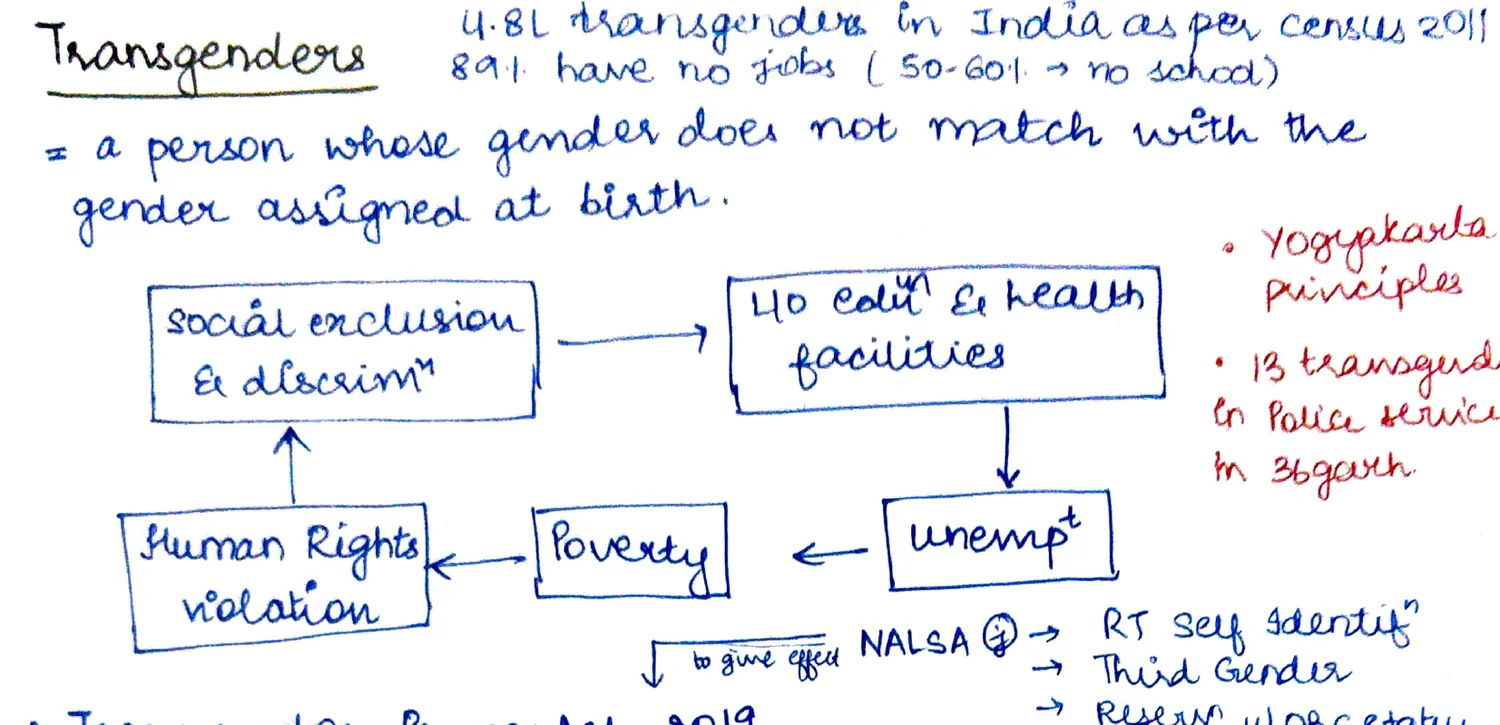 Transgenders
4.8L transgenders in India as per census 2011
89% have no jobs (50-60% → no school)
= a person whose gender does not match with the
gender assigned at birth.
• Yogyakarta
principles
• 13 transgend
in Police service
in 36garh.
social exclusion
& discrimⁿ
no eduⁿ & health
facilities
unempᵗ
Poverty
Human Rights
violation
to give effect NALSA ⓙ → RT Self Identifⁿ
→ Third Gender
→ Reservⁿ
2019